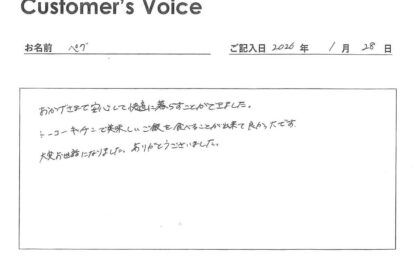 Customer's Voice
お名前 ペグ ご記入日 2026 年 1 月 28 日
おかげさまで安心して快適に暮らすことができました。
トーコーキッチンで美味しいご飯を食べることが出来て良かったです
大変お世話になりました。ありがとうございました。